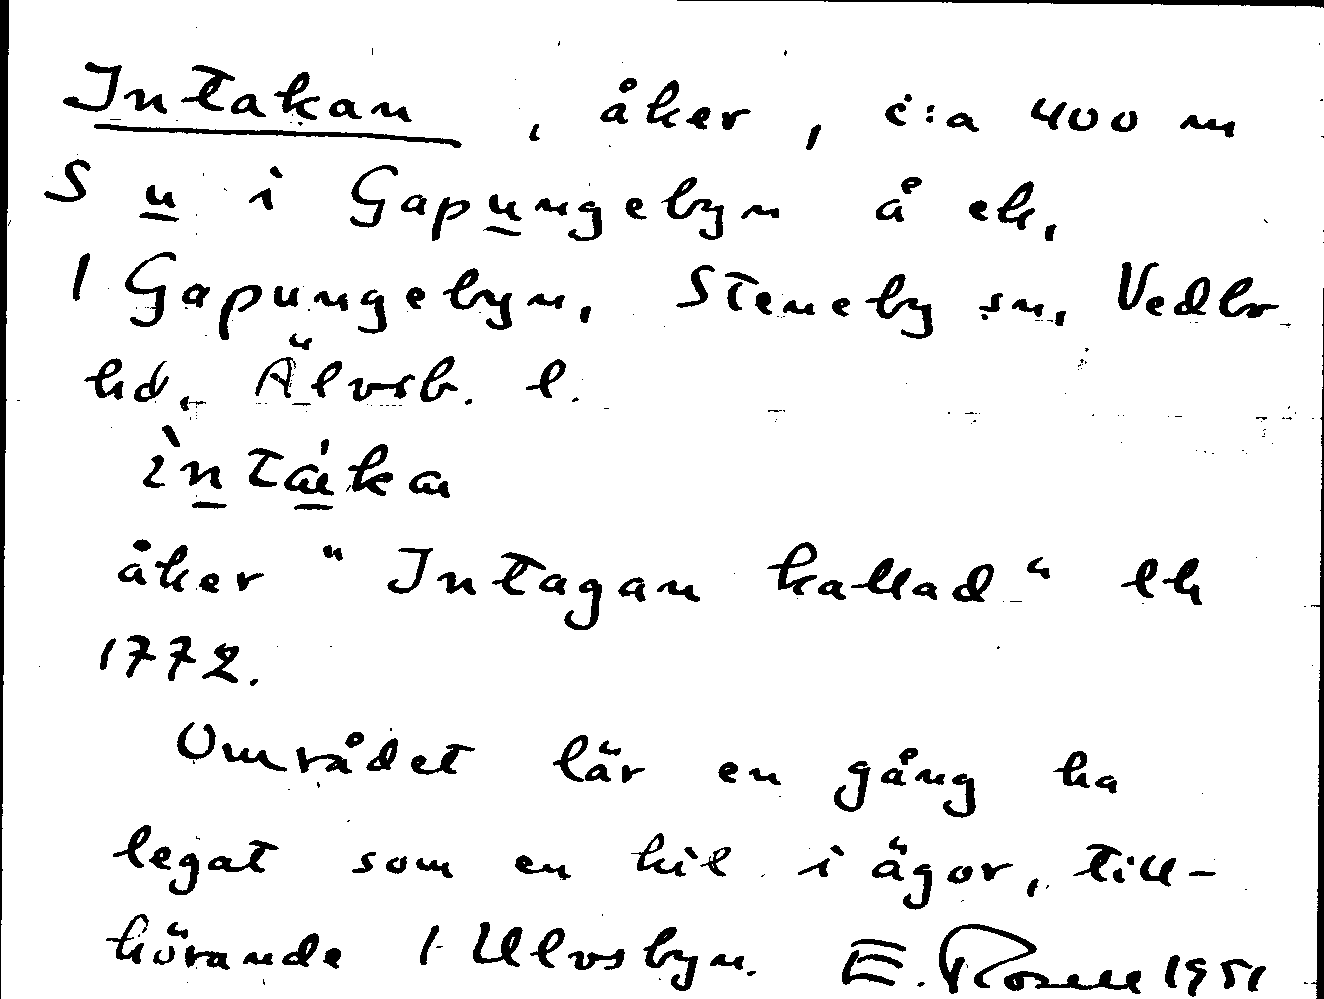 Intakan, åker, c:a 400 m
S u i Gapungebyn å ek,
1 Gapungebyn, Steneby sn, Vedbr
hd, Älvsb. l.
ìntáka
åker "Intagan kallad" lh
1772.
Området lär en gång ha
legat som en kil i ägor, till-
hörande 1 Ulvsbyn. E. Rosell 1951